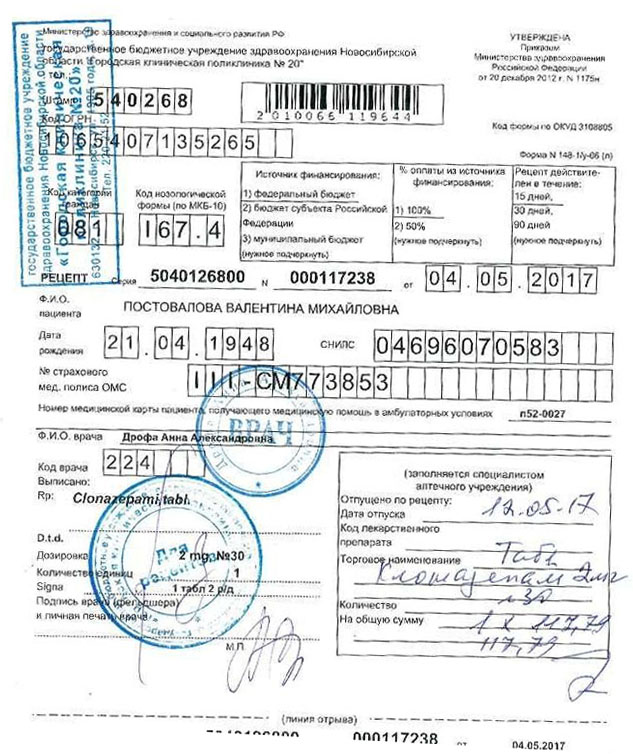 Министерство здравоохранения и социального развития РФ
государственное бюджетное учреждение здравоохранения Новосибирской
области "Городская клиническая поликлиника № 20"
тел.
УТВЕРЖДЕНА
Приказом
Министерства здравоохранения
Российской Федерации
от 20 декабря 2012 г. N 1175н
государственное бюджетное учреждение
здравоохранения Новосибирской области
«Городская клиническая
поликлиника №20»
Штамп 540268
2010066 119644
Код ОГРН
Код формы по ОКУД 3108805
1065407135265
Форма N 148-1/у-06 (л)
Код категории
граждан
081
Код нозологической
формы (по МКБ-10)
I67.4
Источник финансирования:
1) федеральный бюджет
2) бюджет субъекта Российской
Федерации
3) муниципальный бюджет
(нужное подчеркнуть)
% оплаты из источника
финансирования:
1) 100%
2) 50%
(нужное подчеркнуть)
Рецепт действите-
лен в течение:
15 дней,
30 дней,
90 дней
(нужное подчеркнуть)
РЕЦЕПТ Серия 5040126800 N 000117238 от 04.05.2017
Ф.И.О.
пациента ПОСТОВАЛОВА ВАЛЕНТИНА МИХАЙЛОВНА
Дата
рождения 21.04.1948 СНИЛС 04696070583
№ страхового
мед. полиса ОМС III-СМ773853
Номер медицинской карты пациента, получающего медицинскую помощь в амбулаторных условиях п52-0027
Ф.И.О. врача Дрофа Анна Александровна
ВРАЧ
Код врача 224
Выписано:
Rp: Clonazepami,tabl.
D.t.d.
Дозировка 2 mg,№30
Количество единиц 1
Signa 1 табл 2 р/д
Для рецептов
Подпись врача (фельдшера)
и личная печать врача
М.П.
(заполняется специалистом
аптечного учреждения)
Отпущено по рецепту:
Дата отпуска 12.05.17
Код лекарственного
препарата
Торговое наименование Табл
Клоназепам 2мг
Количество №30
На общую сумму 1 x 117,79
117,79
(линия отрыва)
5040126800 000117238 от 04.05.2017